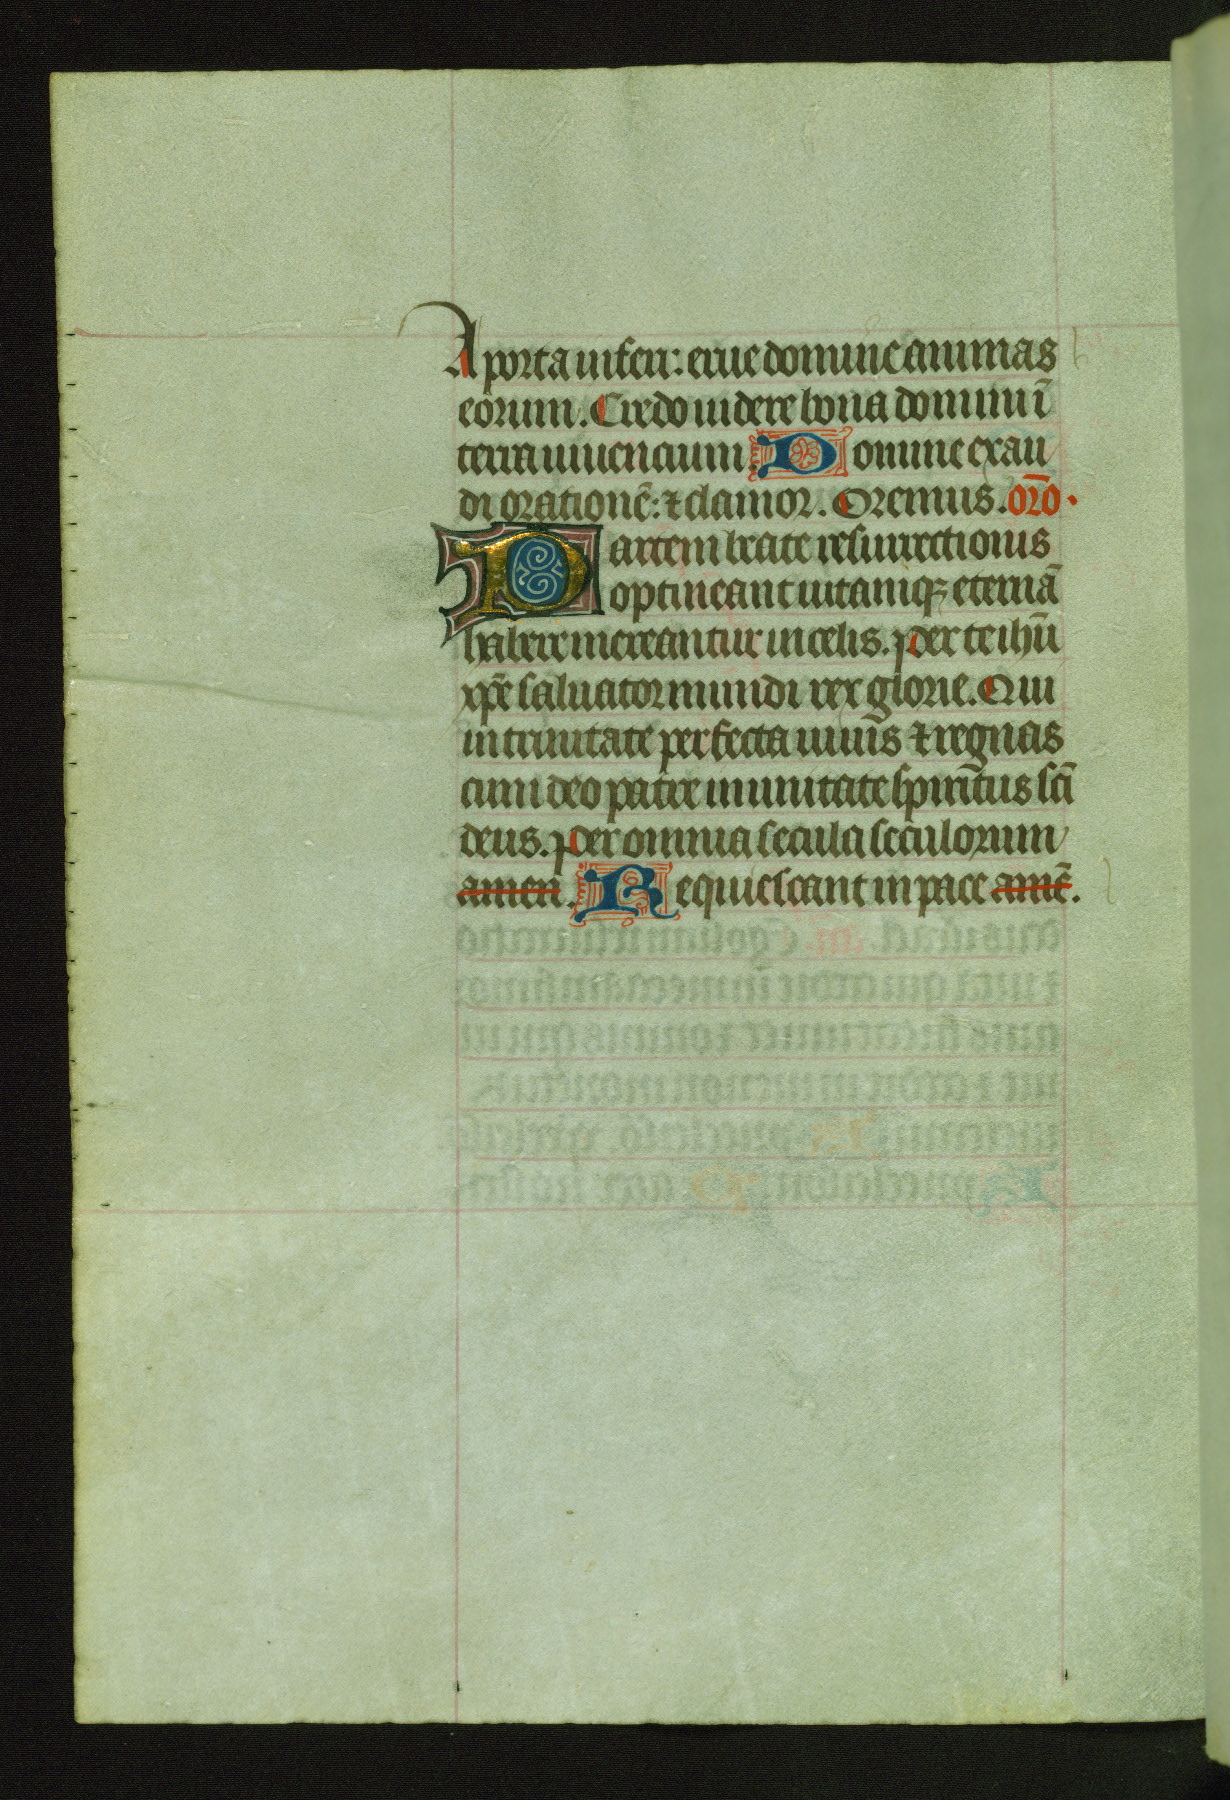 A porta inferi: erue domine animas
eorum. Credo uidere bona domini ĩ
terra uiuencium. Domine exau
di orationẽ: ⁊ clamor. Oremus. or̃o.
Partem beate resurrectionis
optineant uitamqꝫ eternã
habere mereantur in celis. Per te ihũ
xp̃e saluator mundi rex glorie. Qui
in trinitate perfecta uiuis ⁊ regnas
cum deo patre in unitate spiritus sc̃i
deus. Per omnia secula seculorum
amen. Requiescant in pace amẽ.